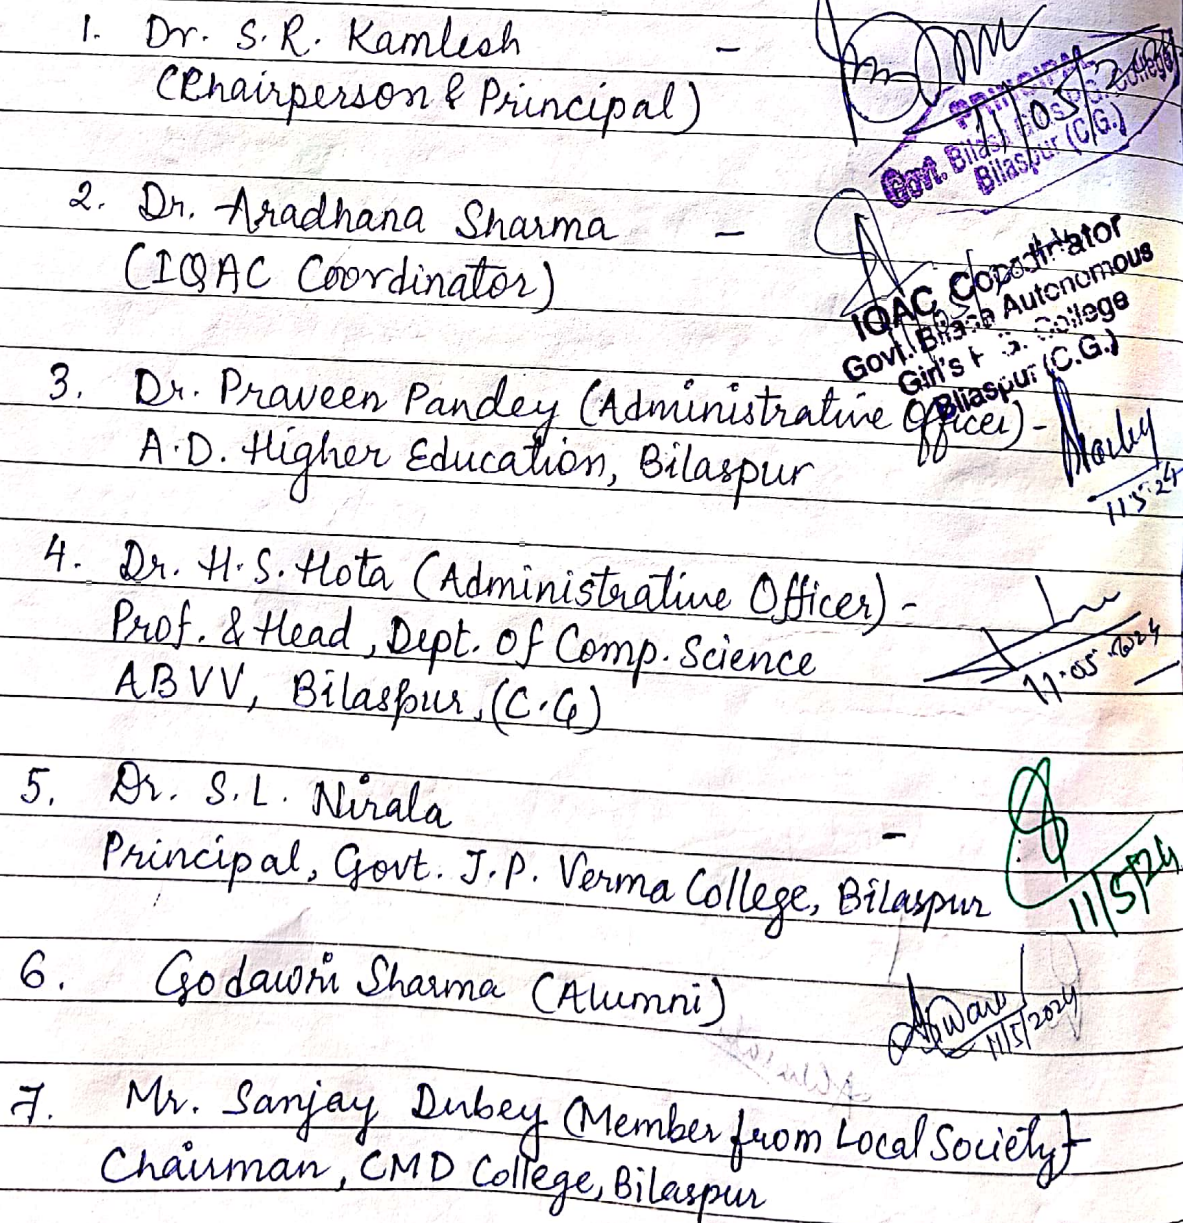 1. Dr. S. R. Kamlesh -
(Chairperson & Principal)
PRINCIPAL
11/05/2024
Govt. Bilasa
Bilaspur (C.G.)
2. Dr. Aradhana Sharma -
(IQAC Coordinator)
IQAC Coordinator
Govt. Bilasa Autonomous
Girl's P. G. College
Bilaspur (C.G.)
3. Dr. Praveen Pandey (Administrative Officer) -
A.D. Higher Education, Bilaspur
11.5.24
4. Dr. H.S. Hota (Administrative Officer) -
Prof. & Head, Dept. of Comp. Science
ABVV, Bilaspur, (C.G)
11.05.2024
5. Dr. S.L. Nirala -
Principal, Govt. J.P. Verma College, Bilaspur
11/5/24
6. Godawri Sharma (Alumni)
11/5/2024
7. Mr. Sanjay Dubey (Member from Local Society) -
Chairman, CMD College, Bilaspur